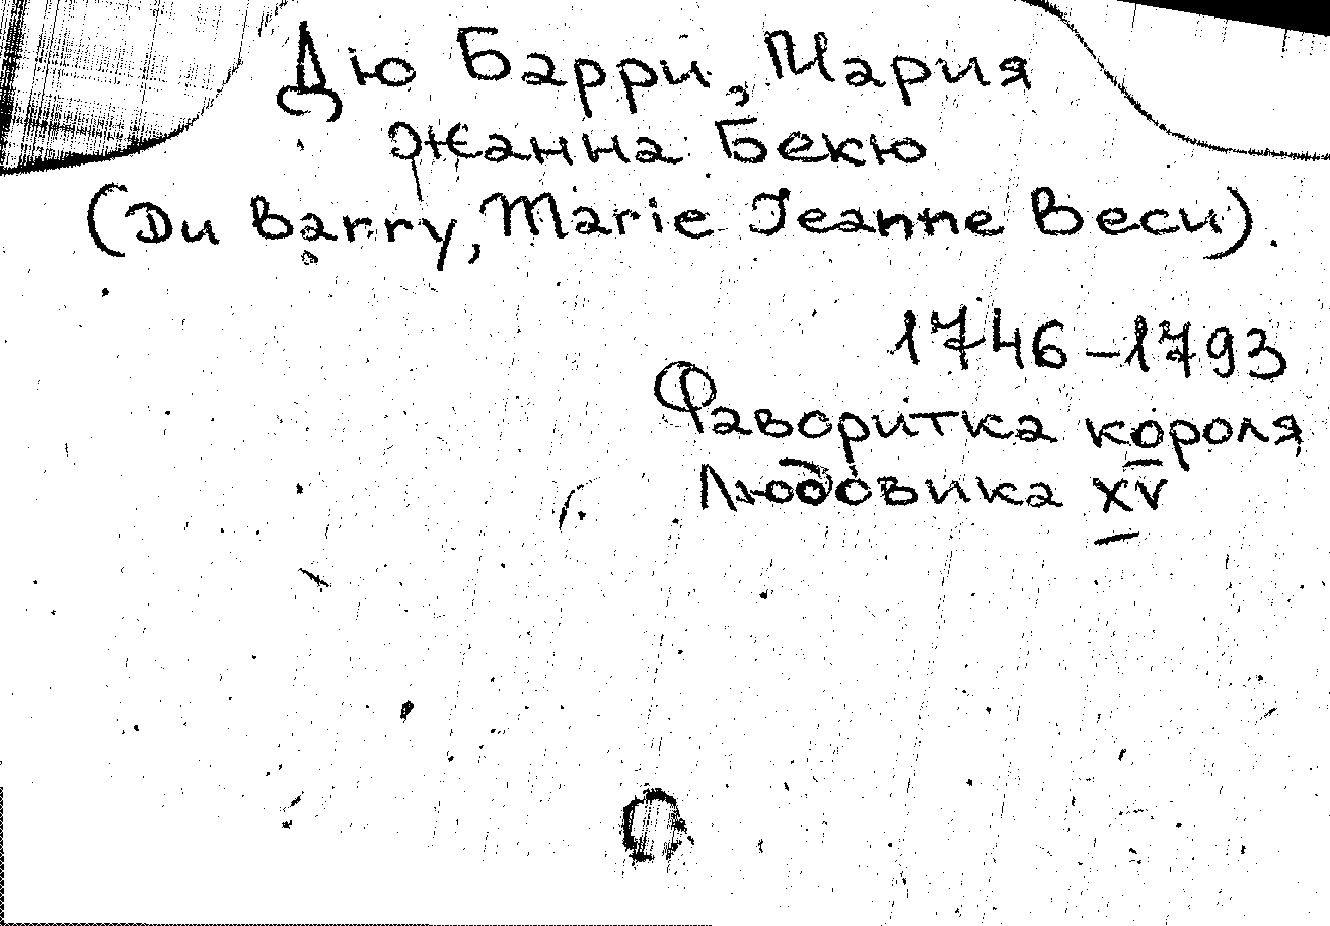 Дю Барри, Мария
Жанна Бекю
(Du Barry, Marie Jeanne Becu).
1746-1793
Фаворитка короля
Людовика XV